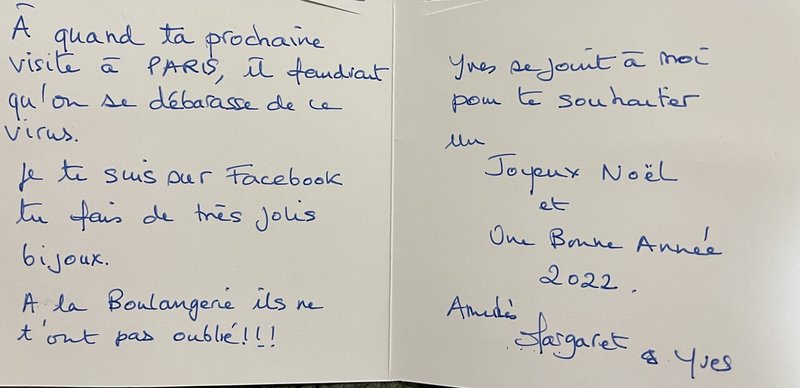 À quand ta prochaine
visite à PARIS, il faudrait
qu'on se débarasse de ce
virus.
Je te suis sur Facebook
tu fais de très jolis
bijoux.
A la Boulangerie ils ne
t'ont pas oublié!!!
Yves se joint à moi
pour te souhaiter
un
Joyeux Noël
et
Une Bonne Année
2022.
Amitiés
Margaret & Yves